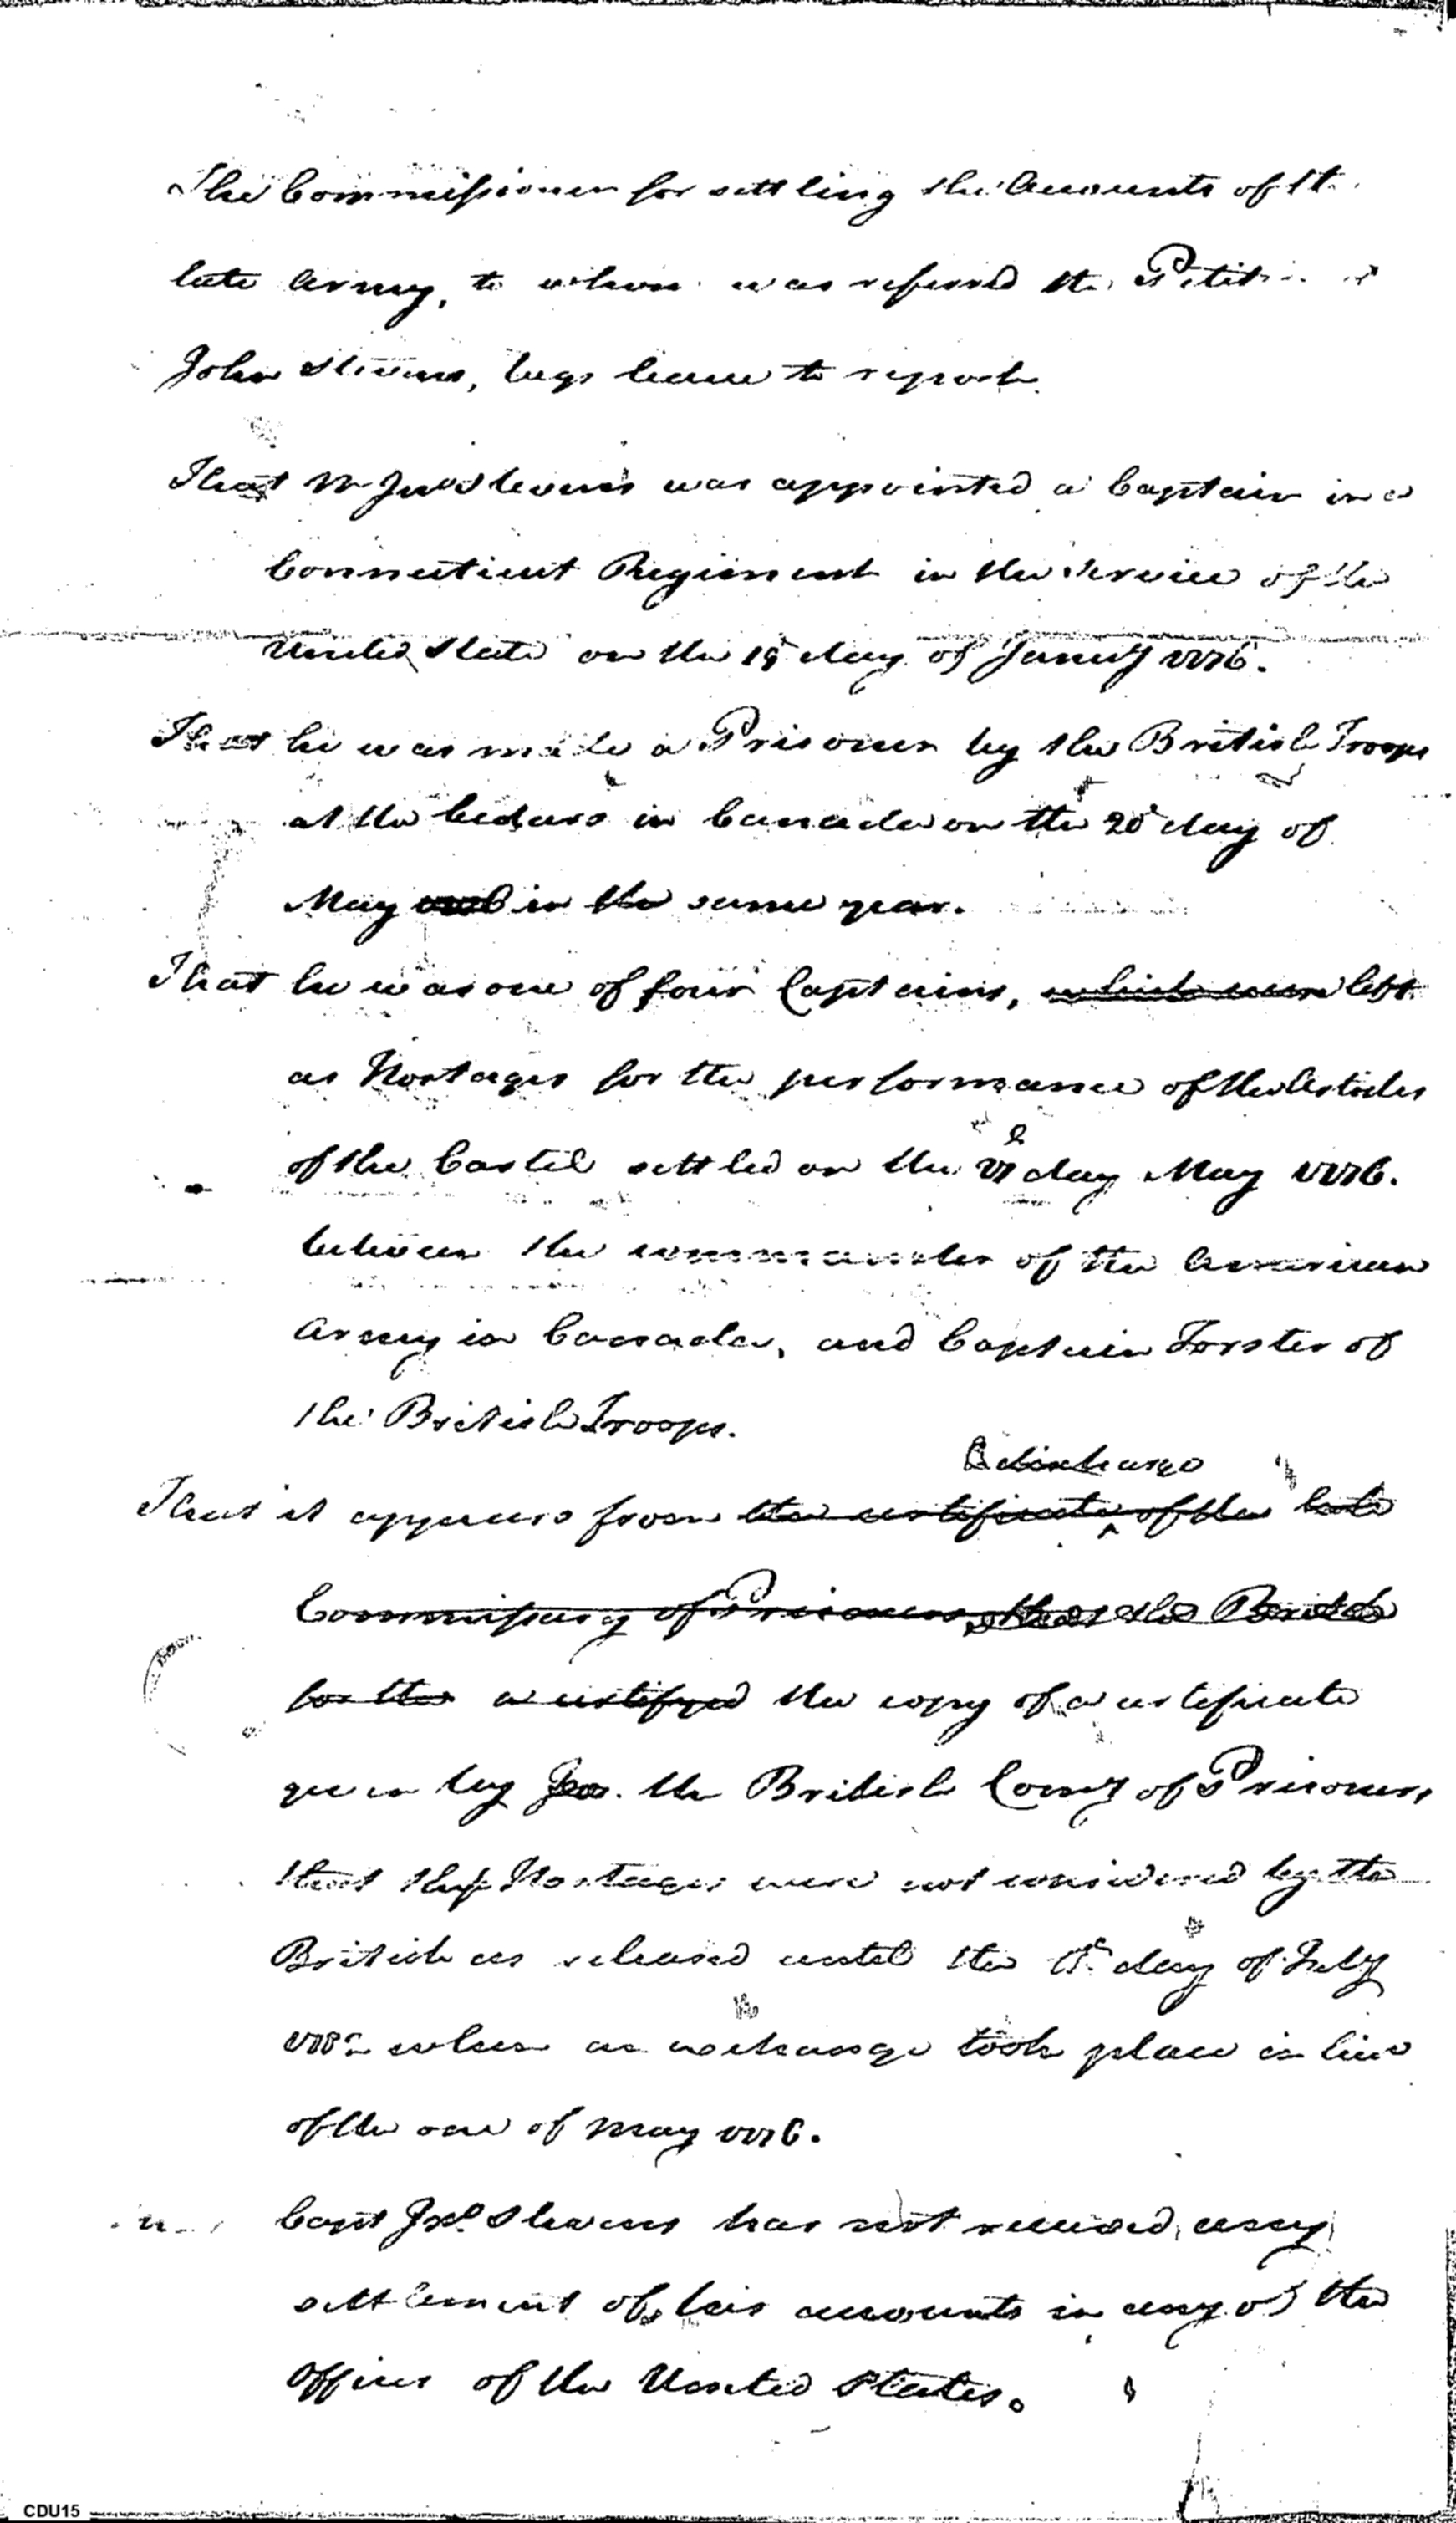 The Commissioner for settling the Accounts of the
late Army, to whom was referred the Petition of
John Stevens, begs leave to report.
That Mr Jno Stevens was appointed a Captain in a
Connecticut Regiment in the Service of the
United States on the 19 day of Janudy 1776.
That he was made a Prisoner by the British Troops
at the Cedars in Canada on the 20th day of
May in the same year.
That he was one of four Captains, which were left
as Hostages for the performance of the Articles
of the Cartel settled on the 27 day May 1776.
between the commander of the American
Army in Canada, and Captain Forster of
the British Troops.
discharge
That it appears from the certificate of the late
Commissary of Prisoners, that the British
for the a certifyed the copy of a certificate
given by the British Comy of Prisoners,
that these Hostages were not considered by the
British as released until the day of July
when an exchange took place in lieu
of the one of May 1776.
Capt Jno. Stevens has not received any
settlement of his accounts in any of the
Offices of the United States.
CDU15